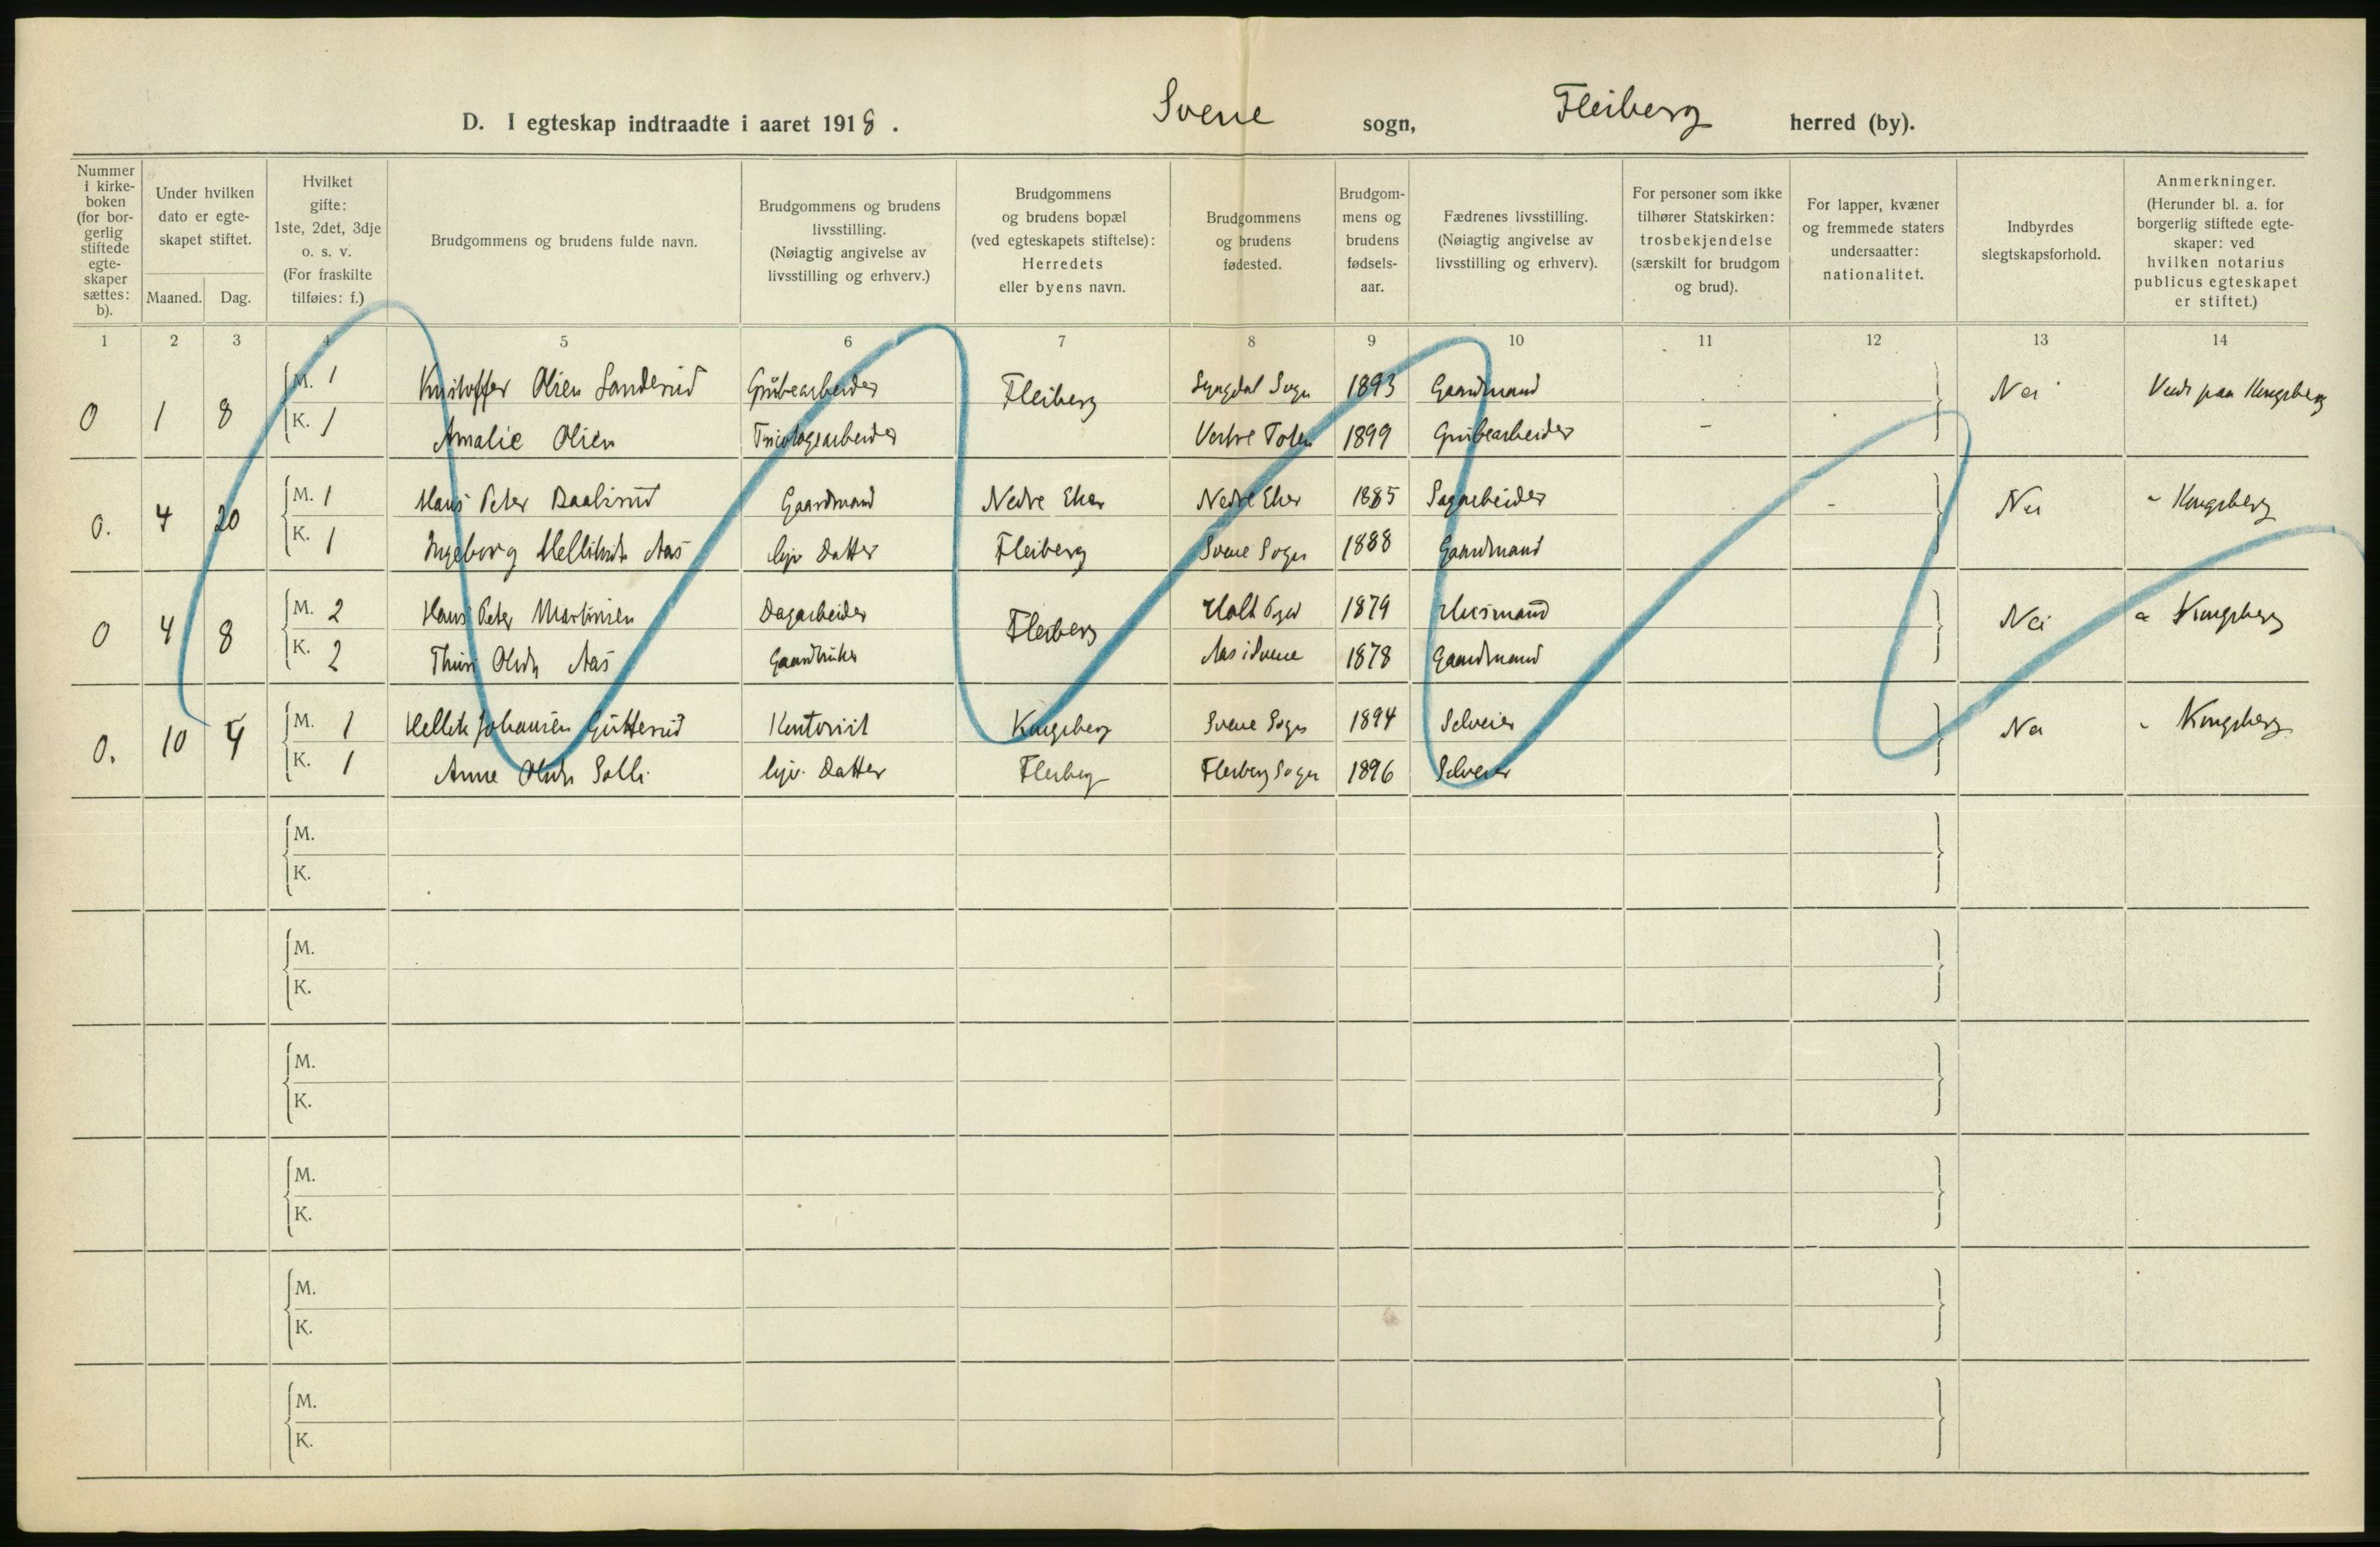 D. I egteskap indtraadte i aaret 1918. Svene sogn, Flesberg herred (by).
Nummer i kirke-boken (for bor-gerlig stiftede egte-skaper sættes: b).
Under hvilken dato er egte-skapet stiftet.
Maaned. Dag.
Hvilket gifte: 1ste, 2det, 3dje o. s. v. (For fraskilte tilføies: f.)
Brudgommens og brudens fulde navn.
Brudgommens og brudens livsstilling. (Nøiagtig angivelse av livsstilling og erhverv.)
Brudgommens og brudens bopæl (ved egteskapets stiftelse): Herredets eller byens navn.
Brudgommens og brudens fødested.
Brudgom-mens og brudens fødsels-aar.
Fædrenes livsstilling. (Nøiagtig angivelse av livsstilling og erhverv).
For personer som ikke tilhører Statskirken: trosbekjendelse (særskilt for brudgom og brud).
For lapper, kvæner og fremmede staters undersaatter: nationalitet.
Indbyrdes slegtskapsforhold.
Anmerkninger. (Herunder bl. a. for borgerlig stiftede egte-skaper: ved hvilken notarius publicus egteskapet er stiftet.)
1 2 3 4 5 6 7 8 9 10 11 12 13 14
0 1 8 M. 1 Kristoffer Olsen Sanderud Grubearbeider Flesberg Lyngdal Sogn 1893 Gaardmand Nei Viede paa Kongsberg
K. 1 Amalie Olsen Tricotagearbeider Vestre Toten 1899 Grubearbeider –
0. 4 20 M. 1 Hans Peter Gaardmand Nedre Eker Nedre Eker 1885 Sagarbeider - Nei " Kongsberg
K. 1 Ingeborg Aas hjv Datter Flesberg Svene Sogn 1888 Gaardmand
0 4 8 M. 2 Hans Peter Martinsen Dagarbeider Flesberg Holt 1879 Husmand Nei " Kongsberg
K. 2 Thuri Olsdtr Aas Gaardbruker Aas i Svene 1878 Gaardmand
0. 10 4 M. 1 Hellik Johansen Gutterud Kontorist Kongsberg Svene Sogn 1894 Selveier Nei " Kongsberg
K. 1 Anne Olsdtr Solli hjv. Datter Flesberg Flesberg Sogn 1896 Selveier
M.
K.
M.
K.
M.
K.
M.
K.
M.
K.
M.
K.